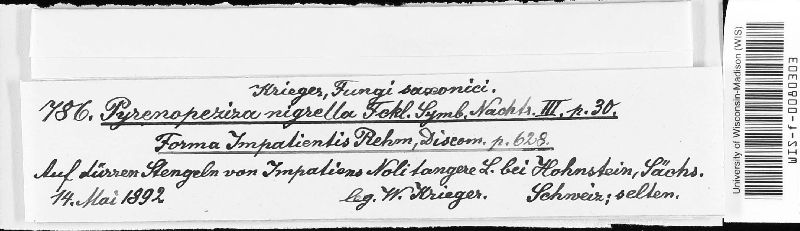 Krieger, Fungi saxonici.
786. Pyrenopeziza nigrella Fckl. Symb. Nachtr. III. p. 30.
Forma Impatientis Rehm, Discom. p. 628.
Auf dürren Stengeln von Impatiens Noli tangere L. bei Hohnstein, Sächs.
14. Mai 1892 leg. W. Krieger. Schweiz; selten.
University of Wisconsin-Madison (WIS)